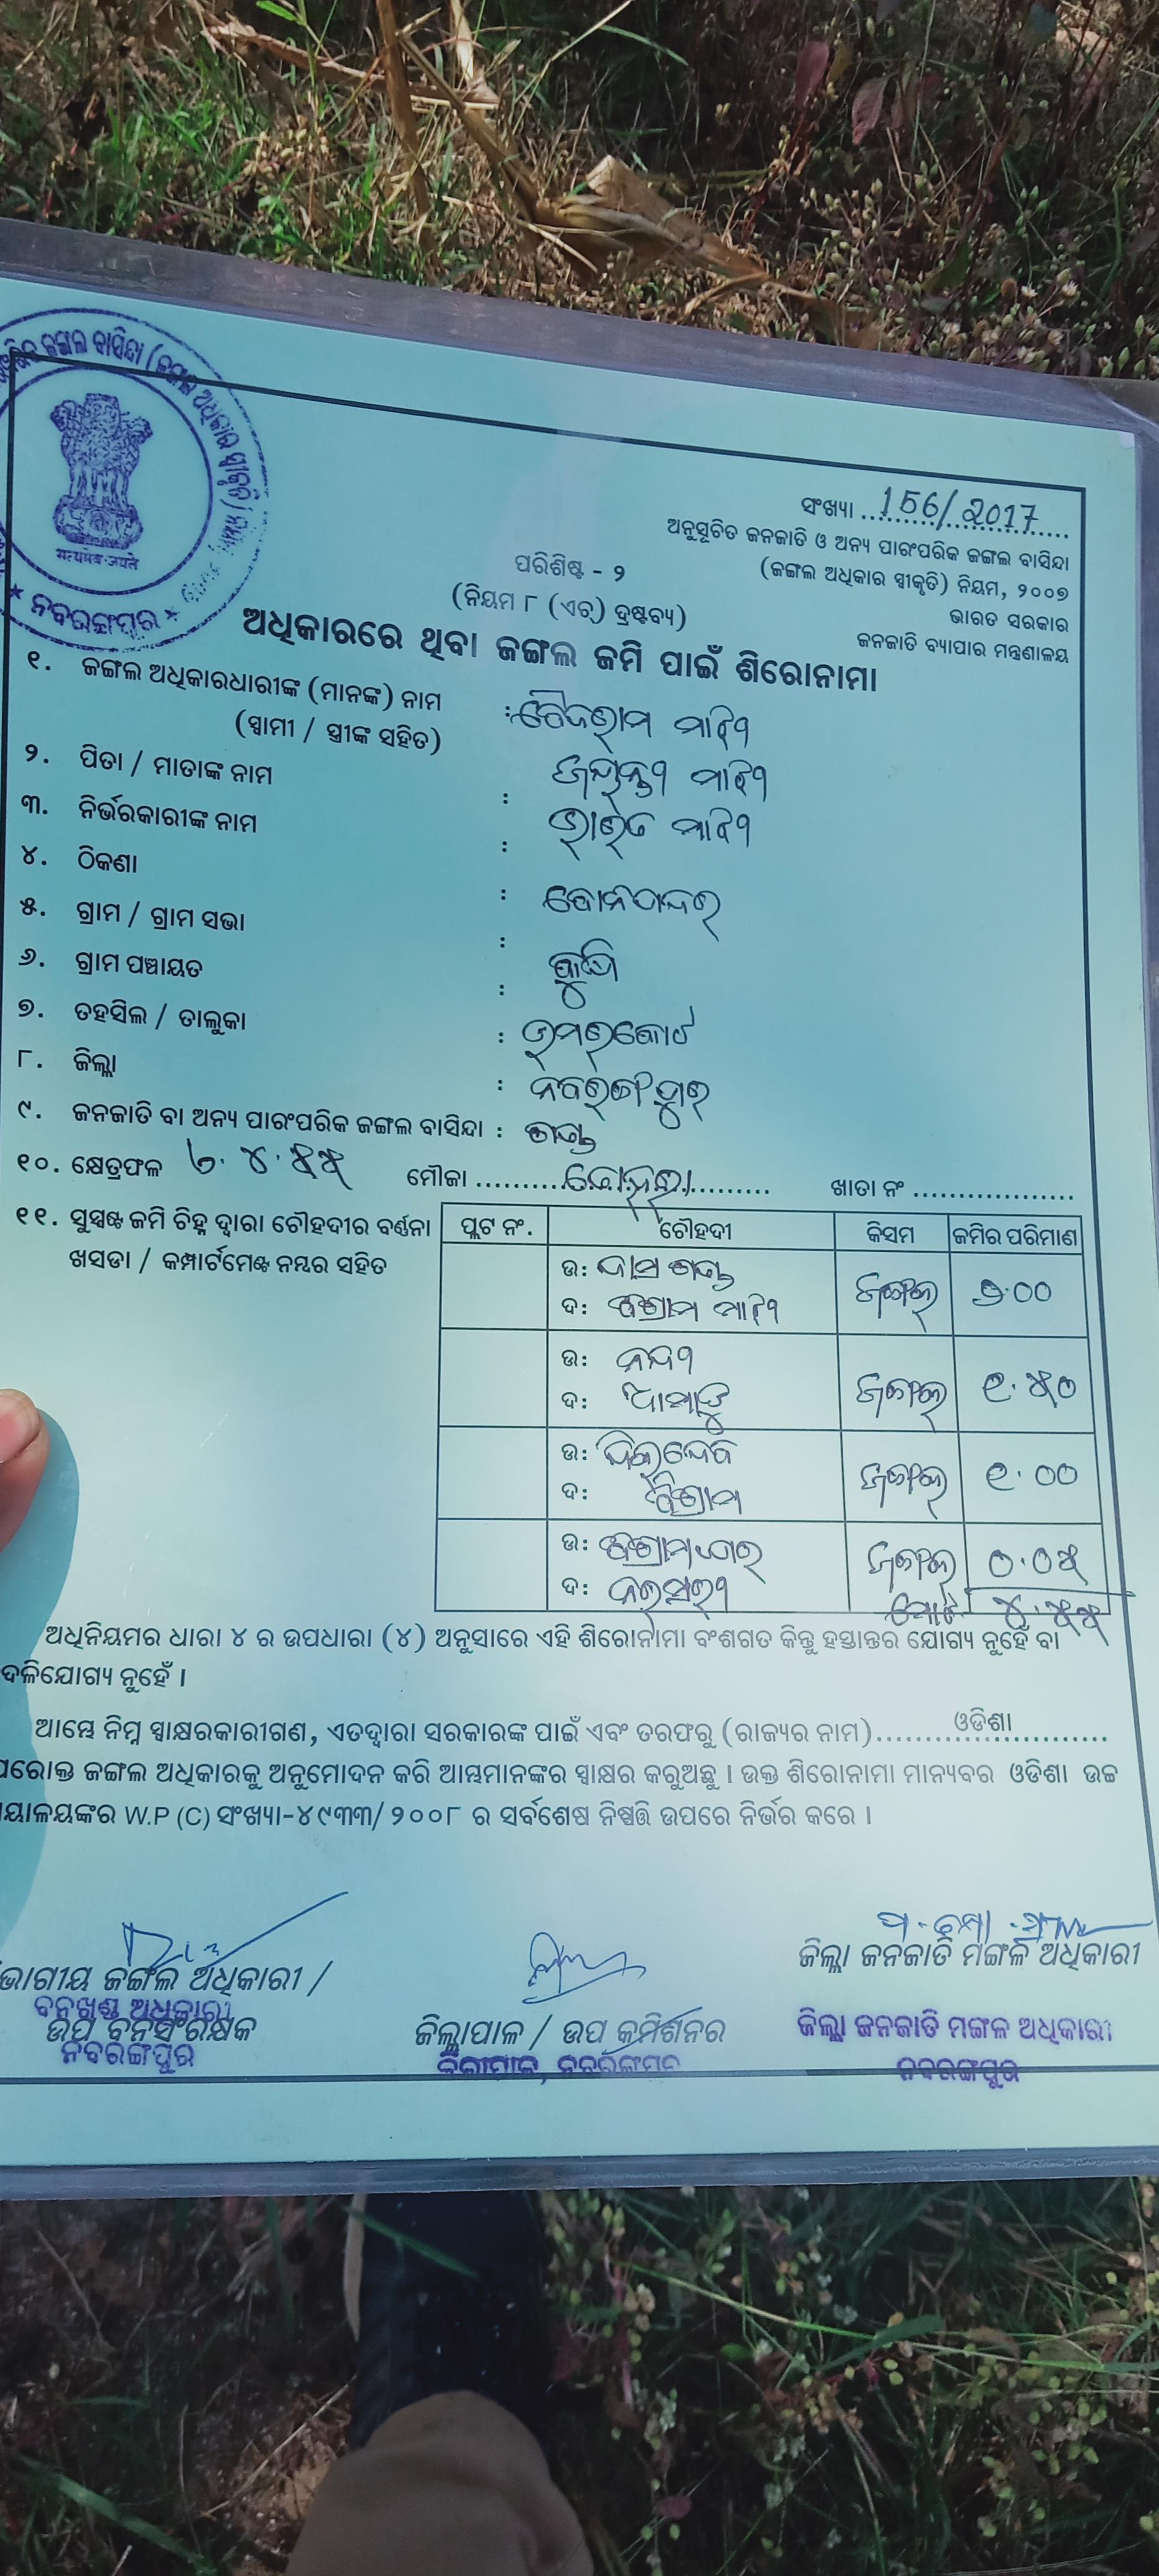 ଜଙ୍ଗଲ ବାସିନ୍ଦା (ଜଙ୍ଗଲ ଅଧିକାର ସ୍ୱୀକୃତି)
सत्यमेव जयते
* ନବରଙ୍ଗପୁର *
ସଂଖ୍ୟା 156/2017
ଅନୁସୂଚିତ ଜନଜାତି ଓ ଅନ୍ୟ ପାରଂପରିକ ଜଙ୍ଗଲ ବାସିନ୍ଦା
(ଜଙ୍ଗଲ ଅଧିକାର ସ୍ୱୀକୃତି) ନିୟମ, ୨୦୦୭
ଭାରତ ସରକାର
ଜନଜାତି ବ୍ୟାପାର ମନ୍ତ୍ରଣାଳୟ
ପରିଶିଷ୍ଟ - ୨
(ନିୟମ ୮ (ଏଚ୍) ଦ୍ରଷ୍ଟବ୍ୟ)
ଅଧିକାରରେ ଥିବା ଜଙ୍ଗଲ ଜମି ପାଇଁ ଶିରୋନାମା
୧. ଜଙ୍ଗଲ ଅଧିକାରଧାରୀଙ୍କ (ମାନଙ୍କ) ନାମ : ଚୈଦରାମ ମାଝୀ
(ସ୍ୱାମୀ / ସ୍ତ୍ରୀଙ୍କ ସହିତ)
୨. ପିତା / ମାତାଙ୍କ ନାମ : ମାଝୀ
୩. ନିର୍ଭରକାରୀଙ୍କ ନାମ : ଭାରତ ମାଝୀ
୪. ଠିକଣା :
୫. ଗ୍ରାମ / ଗ୍ରାମ ସଭା :
୬. ଗ୍ରାମ ପଞ୍ଚାୟତ :
୭. ତହସିଲ / ତାଲୁକା : ଉମରକୋଟ
୮. ଜିଲ୍ଲା : ନବରଙ୍ଗପୁର
୯. ଜନଜାତି ବା ଅନ୍ୟ ପାରଂପରିକ ଜଙ୍ଗଲ ବାସିନ୍ଦା : ଗଣ୍ଡ
୧୦. କ୍ଷେତ୍ରଫଳ ୪.୫୫ ମୌଜା ଖାତା ନଂ
୧୧. ସୁସ୍ପଷ୍ଟ ଜମି ଚିହ୍ନ ଦ୍ୱାରା ଚୌହଦୀର ବର୍ଣ୍ଣନା
ଖସଡା / କମ୍ପାର୍ଟମେଣ୍ଟ ନମ୍ବର ସହିତ
ପ୍ଲଟ ନଂ. ଚୌହଦୀ କିସମ ଜମିର ପରିମାଣ
ଉ: ଦାସ ଗଣ୍ଡ ଜଙ୍ଗଲ ୨.୦୦
ଦ: ମାଝୀ
ଉ: ନନ୍ଦୀ ଜଙ୍ଗଲ ୧.୫୦
ଦ:
ଉ: ଜଙ୍ଗଲ ୧.୦୦
ଦ: ବିଶ୍ରାମ
ଉ: ଜଙ୍ଗଲ ୦.୦୫
ଦ: ମୋଟ ୪.୫୫
ଅଧିନିୟମର ଧାରା ୪ ର ଉପଧାରା (୪) ଅନୁସାରେ ଏହି ଶିରୋନାମା ବଂଶଗତ କିନ୍ତୁ ହସ୍ତାନ୍ତର ଯୋଗ୍ୟ ନୁହେଁ ବା
ଦଳିଯୋଗ୍ୟ ନୁହେଁ ।
ଆମ୍ଭେ ନିମ୍ନ ସ୍ୱାକ୍ଷରକାରୀଗଣ, ଏତଦ୍ୱାରା ସରକାରଙ୍କ ପାଇଁ ଏବଂ ତରଫରୁ (ରାଜ୍ୟର ନାମ) ଓଡିଶା
ପରୋକ୍ତ ଜଙ୍ଗଲ ଅଧିକାରକୁ ଅନୁମୋଦନ କରି ଆମ୍ଭମାନଙ୍କର ସ୍ୱାକ୍ଷର କରୁଅଛୁ । ଉକ୍ତ ଶିରୋନାମା ମାନ୍ୟବର ଓଡିଶା ଉଚ୍ଚ
ୟାଳୟଙ୍କର W.P (C) ସଂଖ୍ୟା-୪୯୩୩/୨୦୦୮ ର ସର୍ବଶେଷ ନିଷ୍ପତ୍ତି ଉପରେ ନିର୍ଭର କରେ ।
ଭାଗୀୟ ଜଙ୍ଗଲ ଅଧିକାରୀ /
ଉପ ବନସଂରକ୍ଷକ
ବନଖଣ୍ଡ ଅଧିକାରୀ
ନବରଙ୍ଗପୁର
ଜିଲ୍ଲାପାଳ / ଉପ କମିଶନର
ଜିଲ୍ଲାପାଳ, ନବରଙ୍ଗପୁର
ଜିଲ୍ଲା ଜନଜାତି ମଙ୍ଗଳ ଅଧିକାରୀ
ଜିଲ୍ଲା ଜନଜାତି ମଙ୍ଗଳ ଅଧିକାରୀ
ନବରଙ୍ଗପୁର